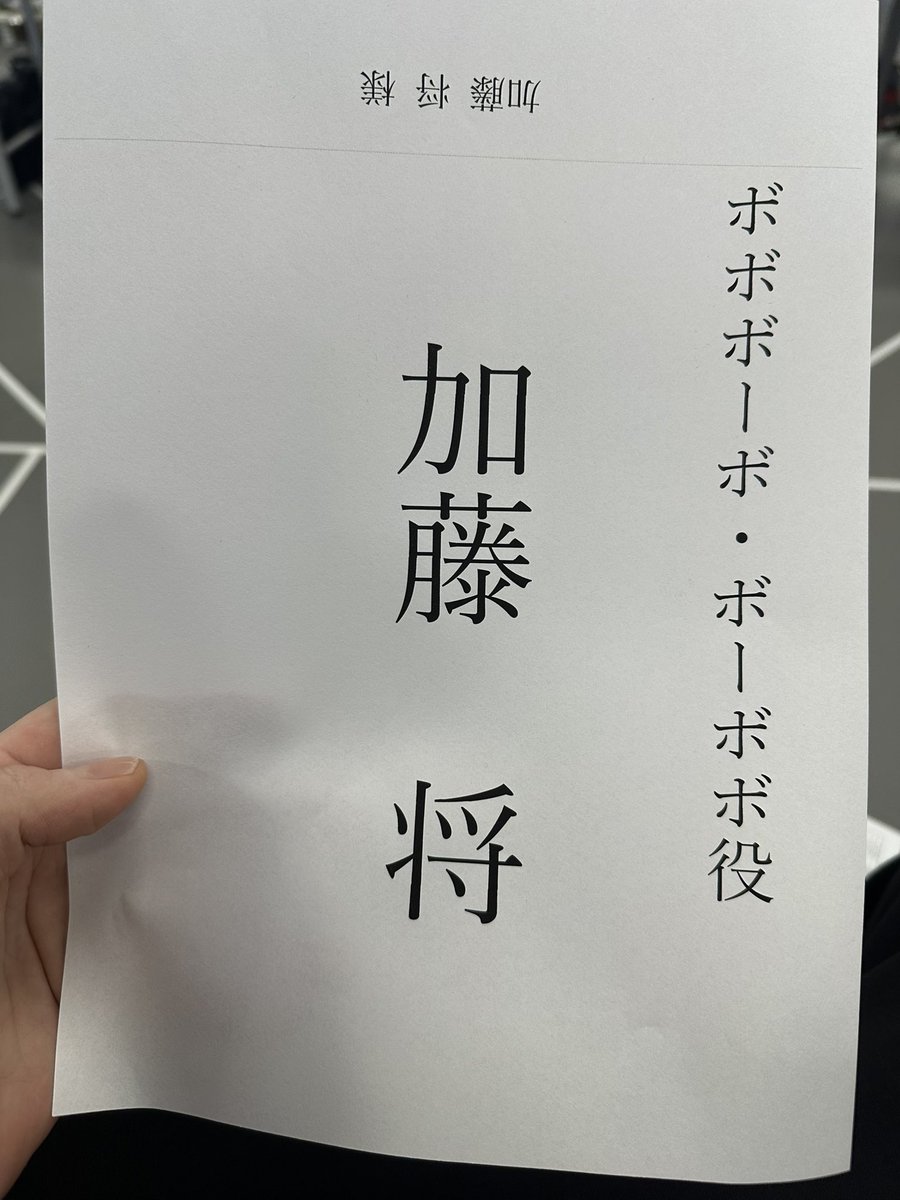 加藤 将 様
ボボボーボ・ボーボボ役
加藤 将